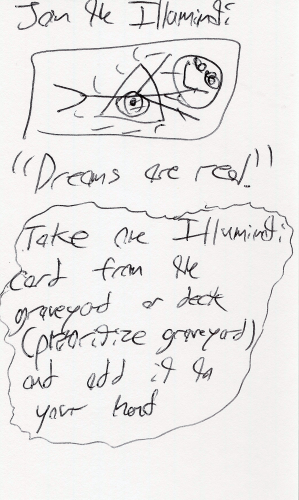 Join the Illuminati
"Dreams are real"
Take one Illuminati
card from the
graveyard or deck
(prioritize graveyard)
and add it to
your hand